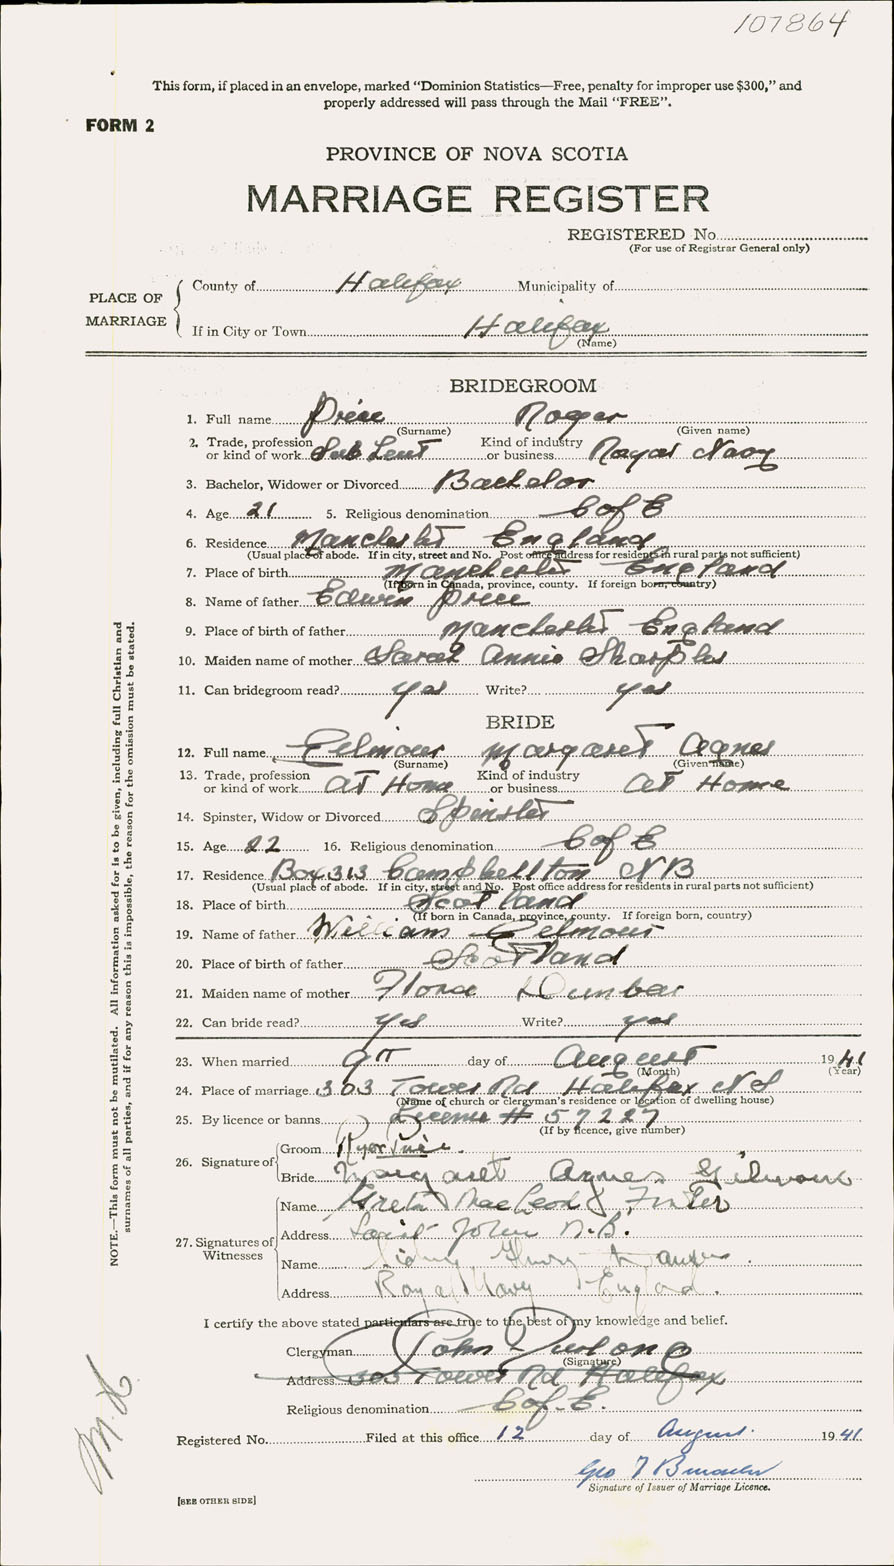 107864
This form, if placed in an envelope, marked "Dominion Statistics—Free, penalty for improper use $300," and
properly addressed will pass through the Mail "FREE".
FORM 2
PROVINCE OF NOVA SCOTIA
MARRIAGE REGISTER
REGISTERED No.
(For use of Registrar General only)
PLACE OF MARRIAGE
County of Halifax Municipality of
If in City or Town Halifax
(Name)
BRIDEGROOM
1. Full name Price Roger
(Surname) (Given name)
2. Trade, profession or kind of work Sub Leut Kind of industry or business Royal Navy
3. Bachelor, Widower or Divorced Bachelor
4. Age 21 5. Religious denomination C of E
6. Residence Manchester England
(Usual place of abode. If in city, street and No. Post office address for residents in rural parts not sufficient)
7. Place of birth Manchester England
(If born in Canada, province, county. If foreign born, country)
8. Name of father Edwin Price
9. Place of birth of father Manchester England
10. Maiden name of mother Sarah Annie Sharples
11. Can bridegroom read? yes Write? yes
BRIDE
12. Full name Gilmour Margaret Agnes
(Surname) (Given name)
13. Trade, profession or kind of work At Home Kind of industry or business At Home
14. Spinster, Widow or Divorced Spinster
15. Age 22 16. Religious denomination C of E
17. Residence Box 313 Campbellton NB
(Usual place of abode. If in city, street and No. Post office address for residents in rural parts not sufficient)
18. Place of birth Scotland
(If born in Canada, province, county. If foreign born, country)
19. Name of father William Gilmour
20. Place of birth of father Scotland
21. Maiden name of mother Flora Dunbar
22. Can bride read? yes Write? yes
23. When married 9th day of August 1941
(Month) (Year)
24. Place of marriage 303 Tower Rd Halifax NS
(Name of church or clergyman's residence or location of dwelling house)
25. By licence or banns License # 57227
(If by licence, give number)
26. Signature of
Groom Roger Price.
Bride Margaret Agnes Gilmour
27. Signatures of Witnesses
Name Greta MacLeod Foster
Address Saint John N.B.
Name Sidney Henry
Address Royal Navy England.
I certify the above stated particulars are true to the best of my knowledge and belief.
Clergyman John Furlong
(Signature)
Address 303 Tower Rd Halifax
Religious denomination C of E.
Registered No. Filed at this office 12 day of August 1941
Geo F
Signature of Issuer of Marriage Licence.
[SEE OTHER SIDE]
NOTE.—This form must not be mutilated. All information asked for is to be given, including full Christian and
surnames of all parties, and if for any reason this is impossible, the reason for the omission must be stated.
M.H